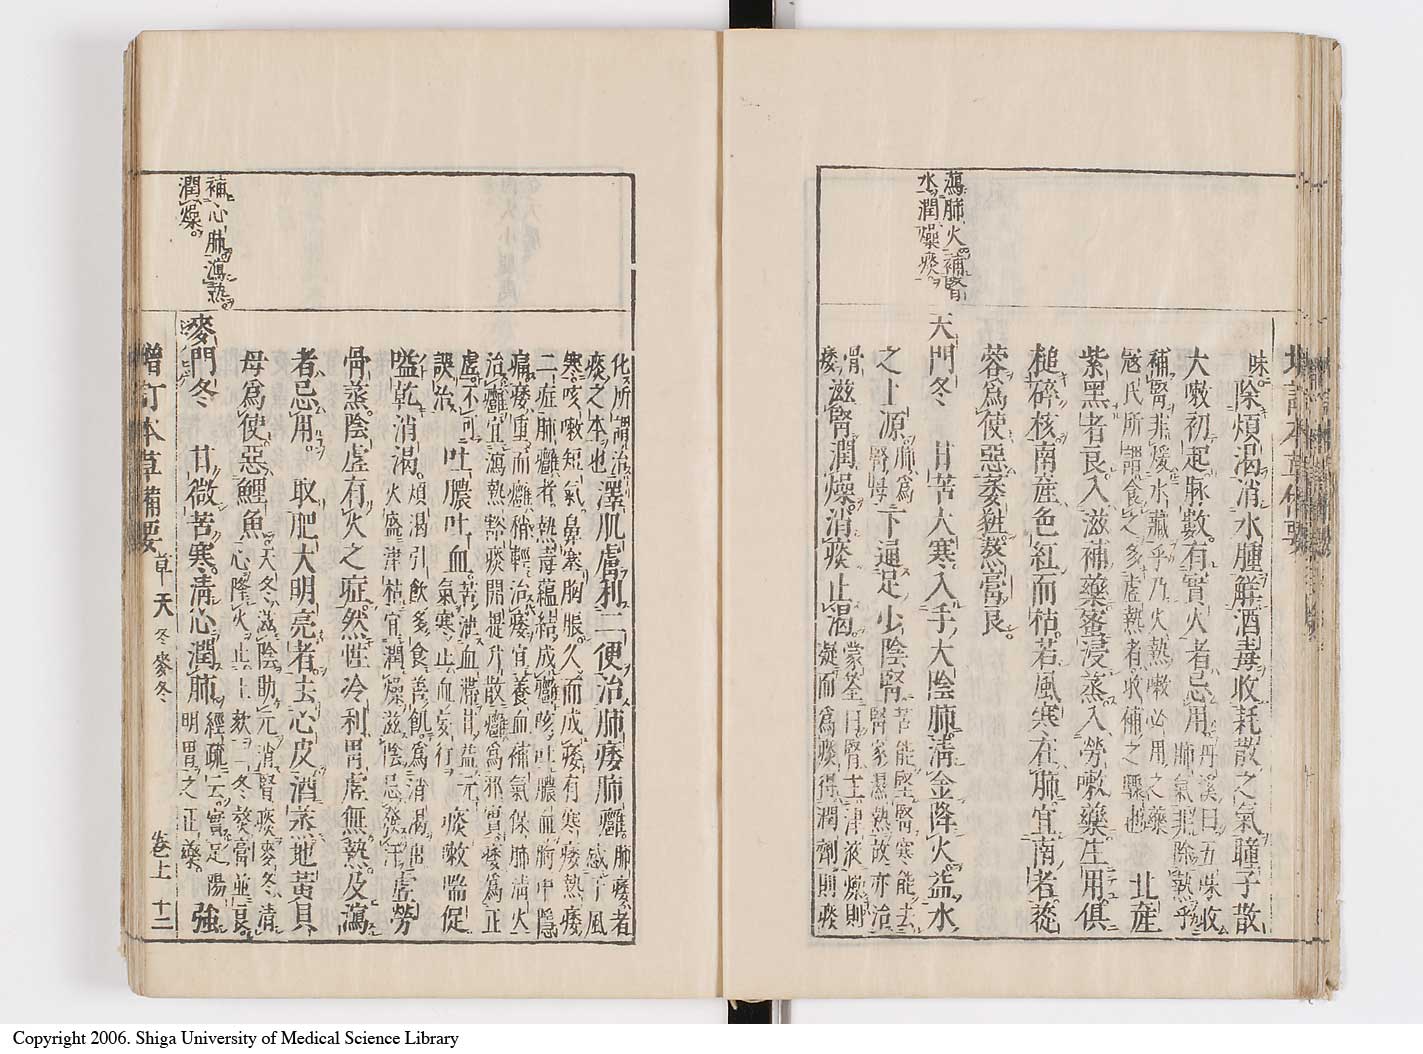 增訂本草備要
味。除煩渴消水腫解酒毒收耗散之氣瞳子散
大嗽初起脉數有實火者忌用丹溪曰五味收
肺氣非除熱乎
補腎非煖水藏乎乃火熱嗽必用之藥
寇氏所謂食之多虛熱者收補之驟也北産
紫黑者良入滋補藥蜜浸蒸入勞嗽藥生用俱
槌碎核南産色紅而枯若風寒在肺宜南者蓯
蓉爲使惡萎蕤熬膏良。
瀉肺火補腎
水潤燥痰。
天門冬　甘苦大寒入手太陰肺清金降火益水
之上源。肺爲
腎母下通足少陰腎苦能堅腎寒能去
腎家濕熱故亦治
骨
痿滋腎潤燥。消痰止渴蒙筌曰腎主津液燥則
凝而爲痰得潤劑則痰
化所謂治
痰之本也澤肌膚利二便治肺痿肺癰。肺痿者
感于風
寒咳嗽短氣鼻塞胸脹久而成痿有寒痿熱痿
二症肺癰者熱毒蘊結成癰咳吐膿血胸中隱
痛痿重而癰稍輕治痿宜養血補氣保肺清火
治癰宜瀉熱豁痰開提升散癰爲邪實痿爲正
虛不可
誤治吐膿吐血。苦泄血滯甘益元
氣寒止血妄行痰嗽喘促
嗌乾消渴。煩渴引飲多食善飢爲消渴由
火盛津枯宜潤燥滋陰忌發汗虛勞
骨蒸陰虛有火之症。然性冷利胃虛無熱。及瀉
者忌用。取肥大明亮者去心皮酒蒸地黄貝
母爲使惡鯉魚。天冬滋陰助元消腎痰麥冬清
心降火止上欬二冬熬膏並良。
補心肺瀉熱
潤燥。
麥門冬　甘微苦寒。清心潤肺經疏云實足陽
明胃之正藥強
增訂本草備要　草　天冬　麥冬　卷上　十二
Copyright 2006. Shiga University of Medical Science Library